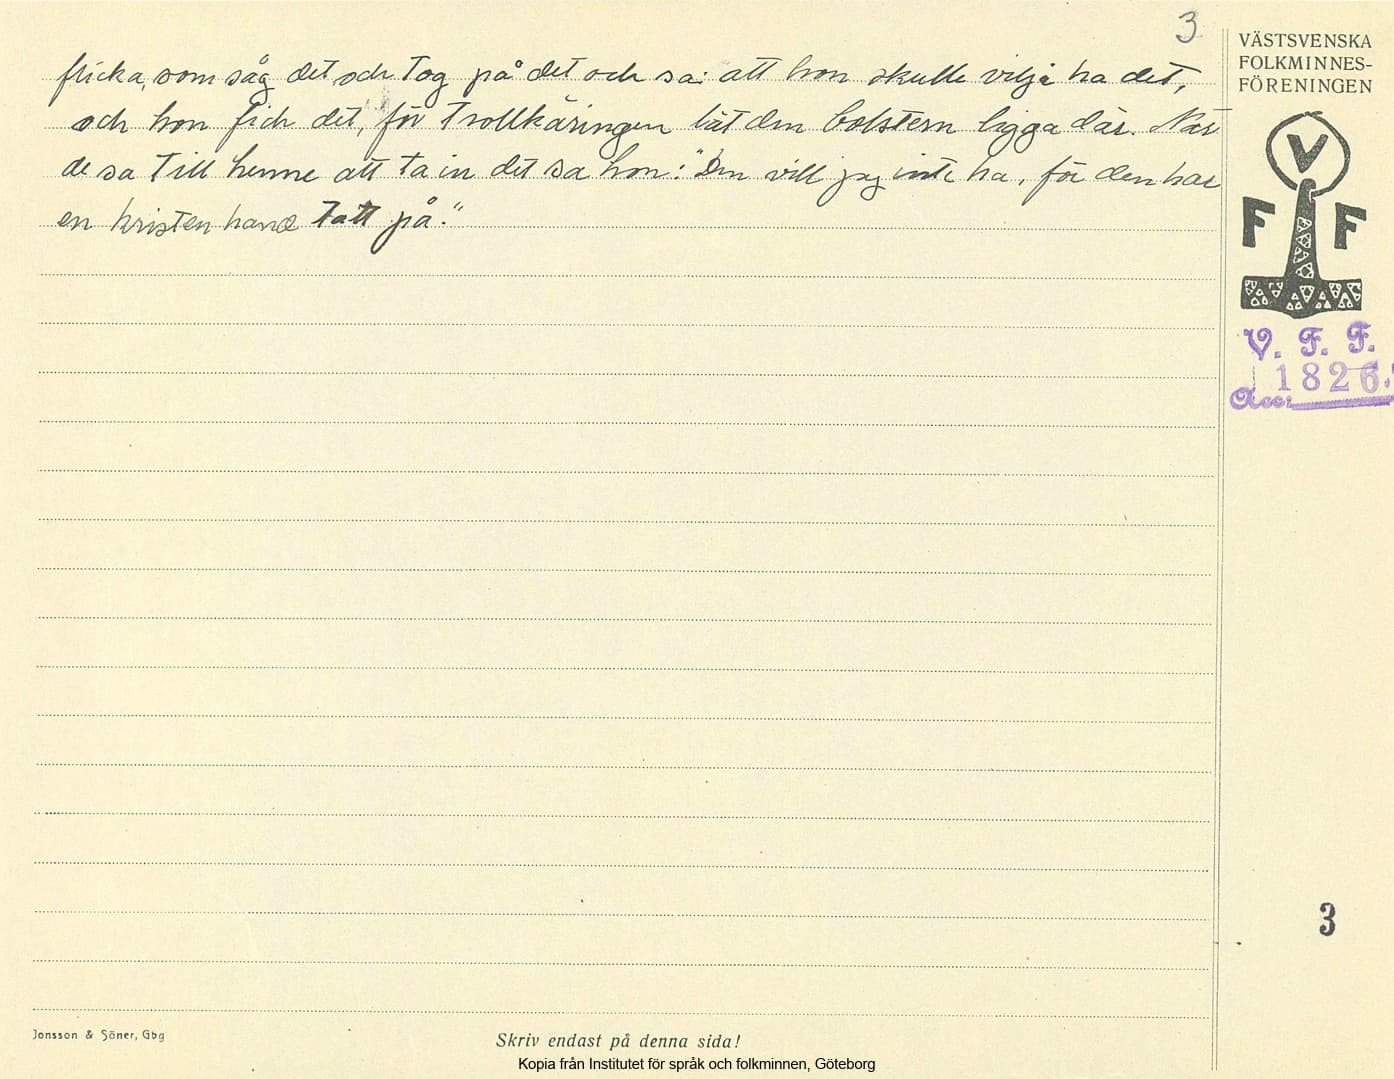 3
flicka, som såg det och tog på det och sa: att hon skulle vilja ha det,
och hon fick det, för trollkäringen lät den bolstern ligga där. När
de sa till henne att ta in det sa hon: "Den vill jag inte ha, för den har
en kristen hand tatt på."
VÄSTSVENSKA
FOLKMINNES-
FÖRENINGEN
V
F F
V. F. F.
1826.
Acc:
3
Jonsson & Söner, Gbg
Skriv endast på denna sida!
Kopia från Institutet för språk och folkminnen, Göteborg